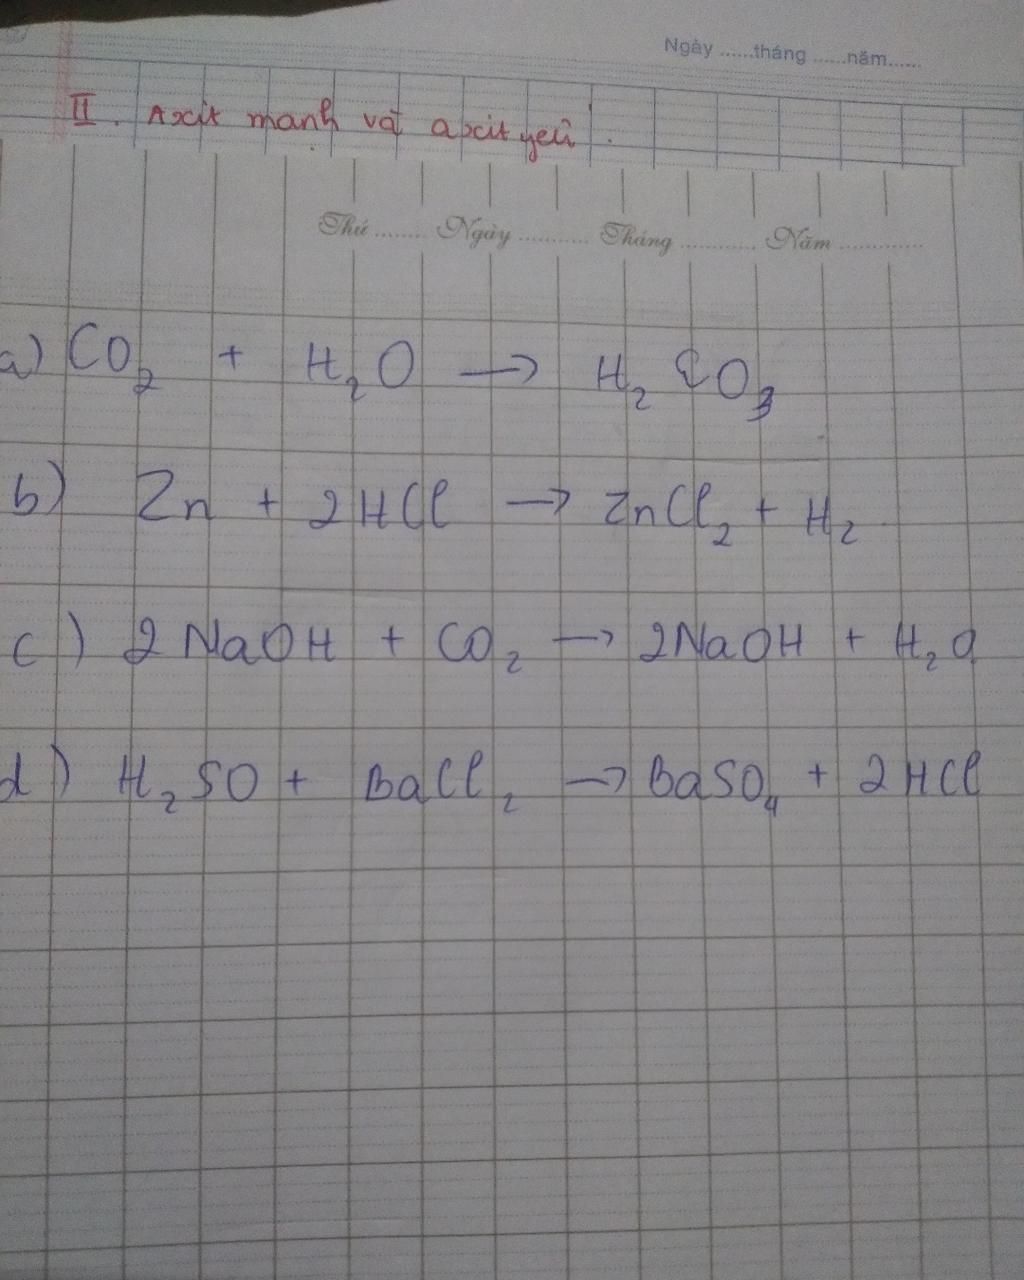 Ngày ......tháng ......năm......
II. Axit manh và axit yeú.
Thứ ........ Ngày ........... Tháng ............ Năm .............
a) CO₂ + H₂O → H₂CO₃
b) Zn + 2HCl → ZnCl₂ + H₂
c) 2NaOH + CO₂ → 2NaOH + H₂O
d) H₂SO + BaCl₂ → BaSO₄ + 2HCl